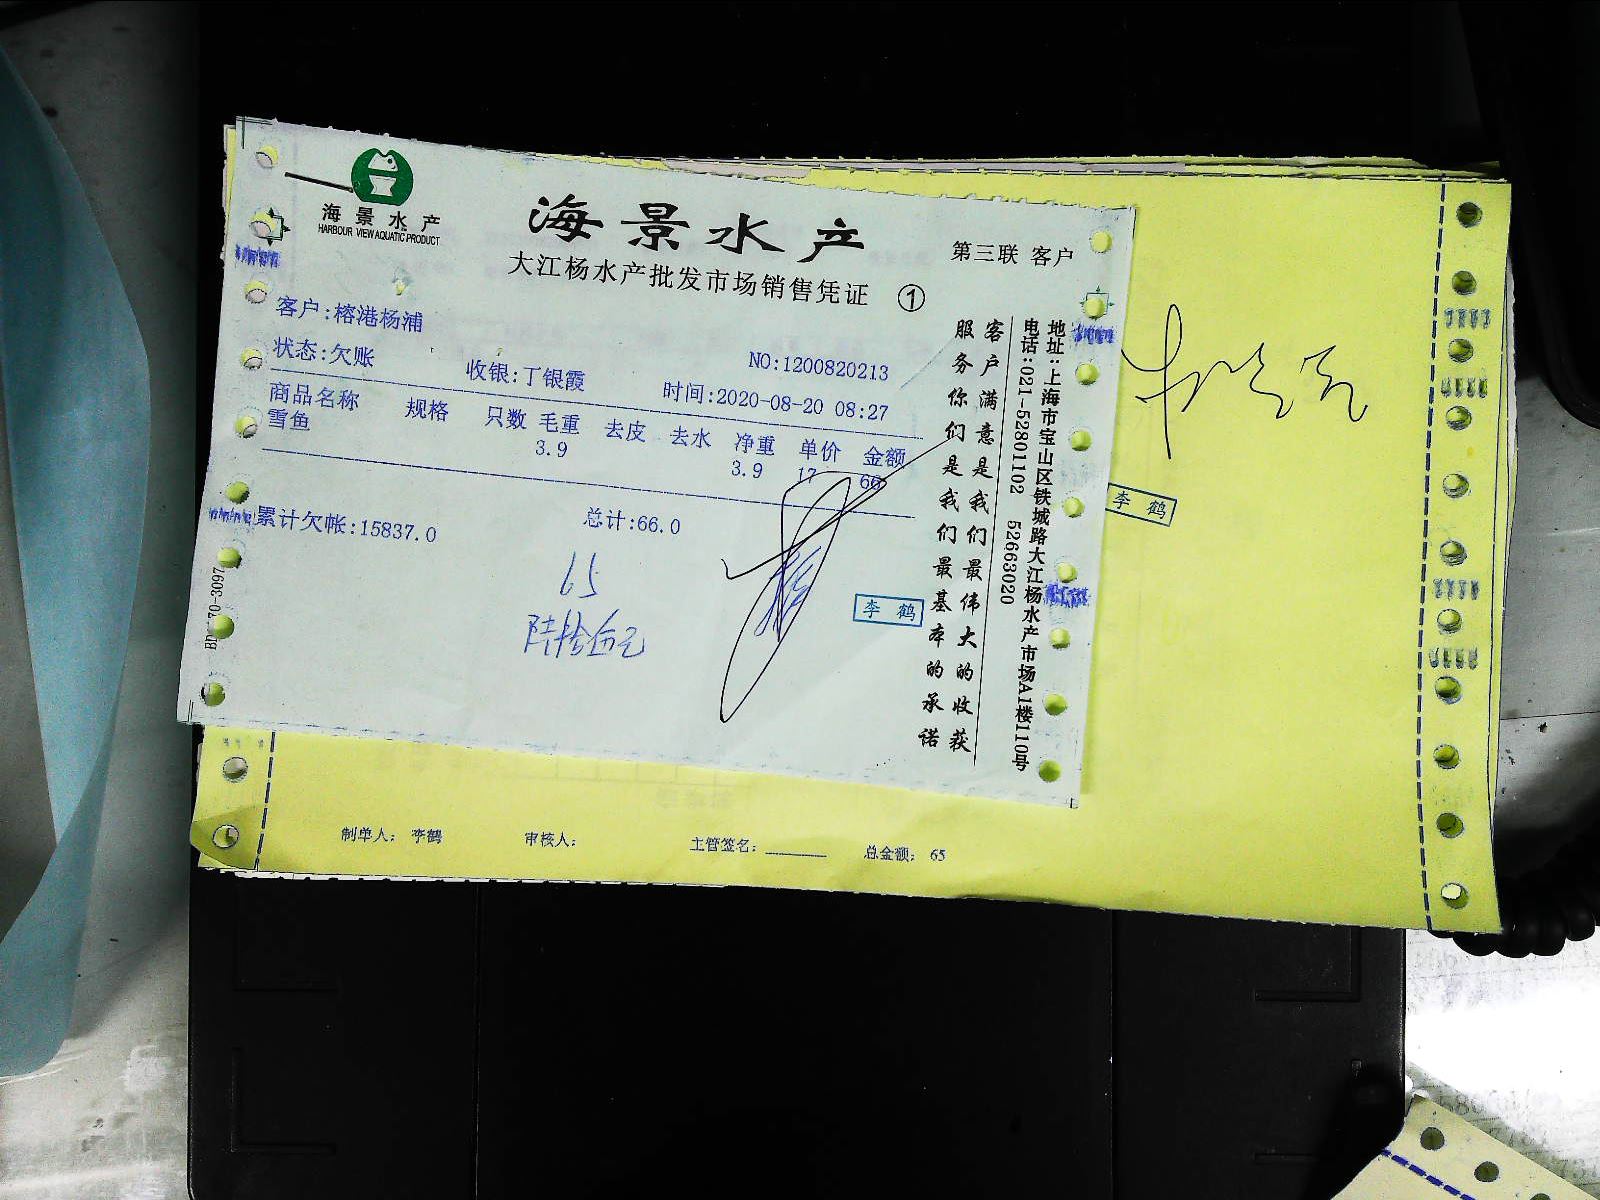 海景水产
HARBOUR VIEW AQUATIC PRODUCT
海景水产
大江杨水产批发市场销售凭证 ①
第三联 客户
客户:榕港杨浦
状态:欠账
收银:丁银霞
NO:1200820213
时间:2020-08-20 08:27
商品名称 规格 只数 毛重 去皮 去水 净重 单价 金额
雪鱼 3.9 3.9 17 66
累计欠帐:15837.0
总计:66.0
65
陆拾伍元
李鹤
客户满意是我们最伟大的收获
服务你们是我们最基本的承诺
地址:上海市宝山区铁城路大江杨水产市场A1楼110号
电话:021-52801102 52663020
70-3097
李鹤
制单人: 李鹤
审核人:
主管签名:
总金额: 65